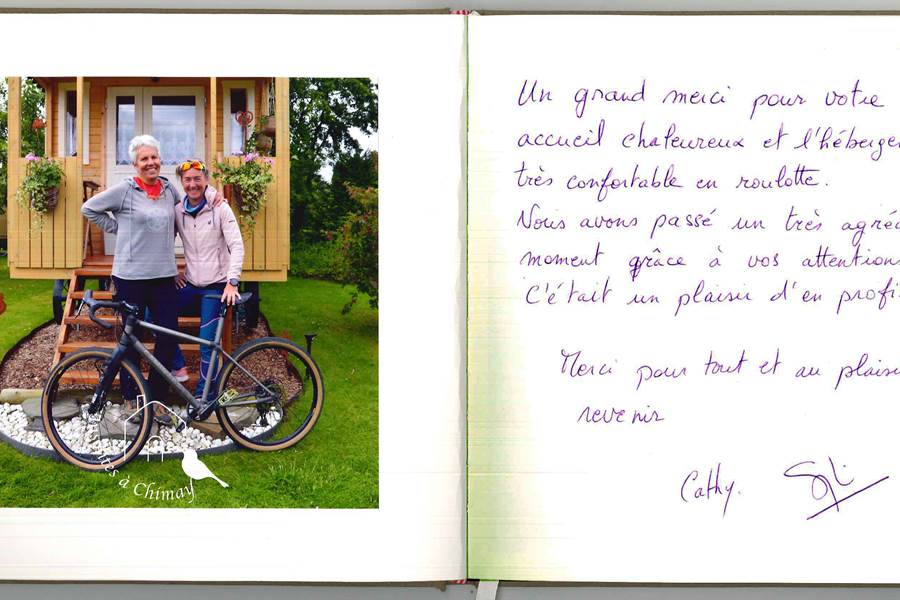 Un grand merci pour votre
accueil chaleureux et l'héberge
très confortable en roulotte.
Nous avons passé un très agréa
moment grâce à vos attentions
C'était un plaisir d'en profi
Merci pour tout et au plaisi
revenir
Cathy.
ités à Chimay